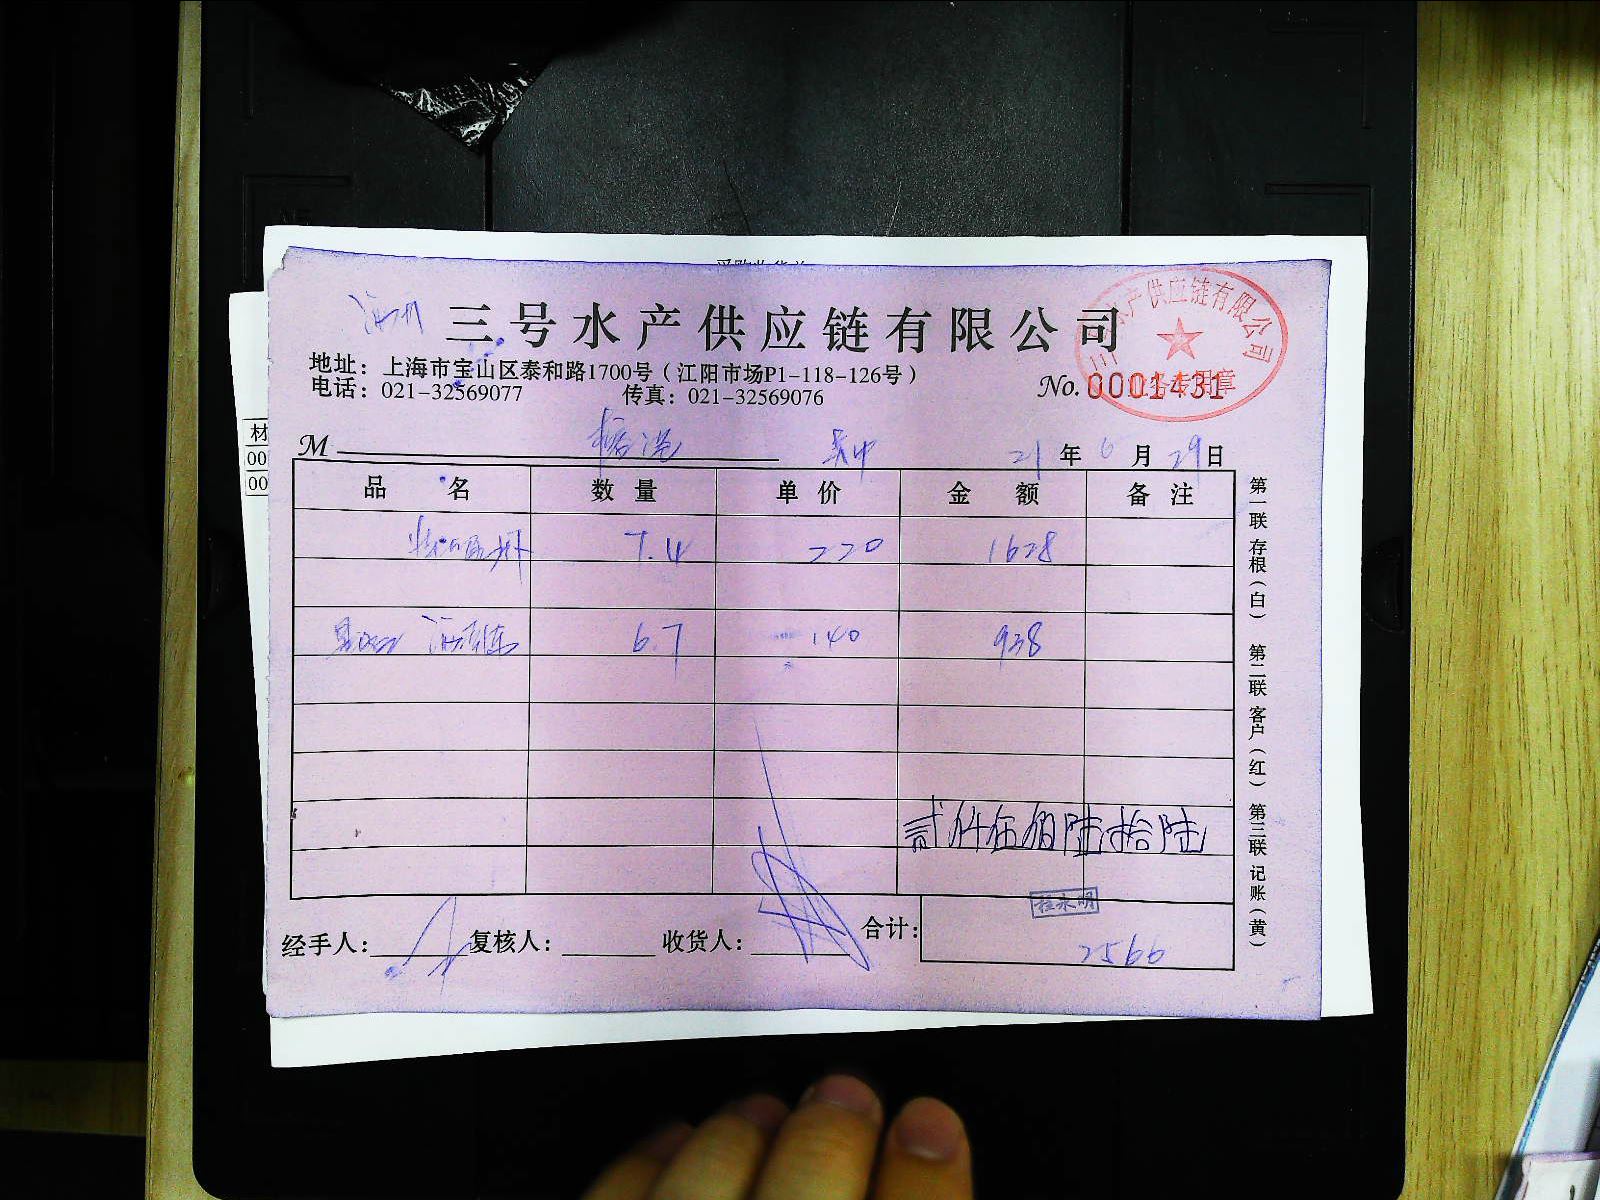 三号水产供应链有限公司
三号水产供应链有限公司
业务专用章
地址：上海市宝山区泰和路1700号（江阳市场P1-118-126号）
电话：021-32569077 传真：021-32569076
No. 0001431
M 21年6月29日
品名 数量 单价 金额 备注
7.4 220 1628
6.7 140 938
贰仟伍佰陆拾陆
程永明
经手人： 复核人： 收货人： 合计： 2566
第一联 存根（白） 第二联 客户（红） 第三联 记账（黄）
材
00
00